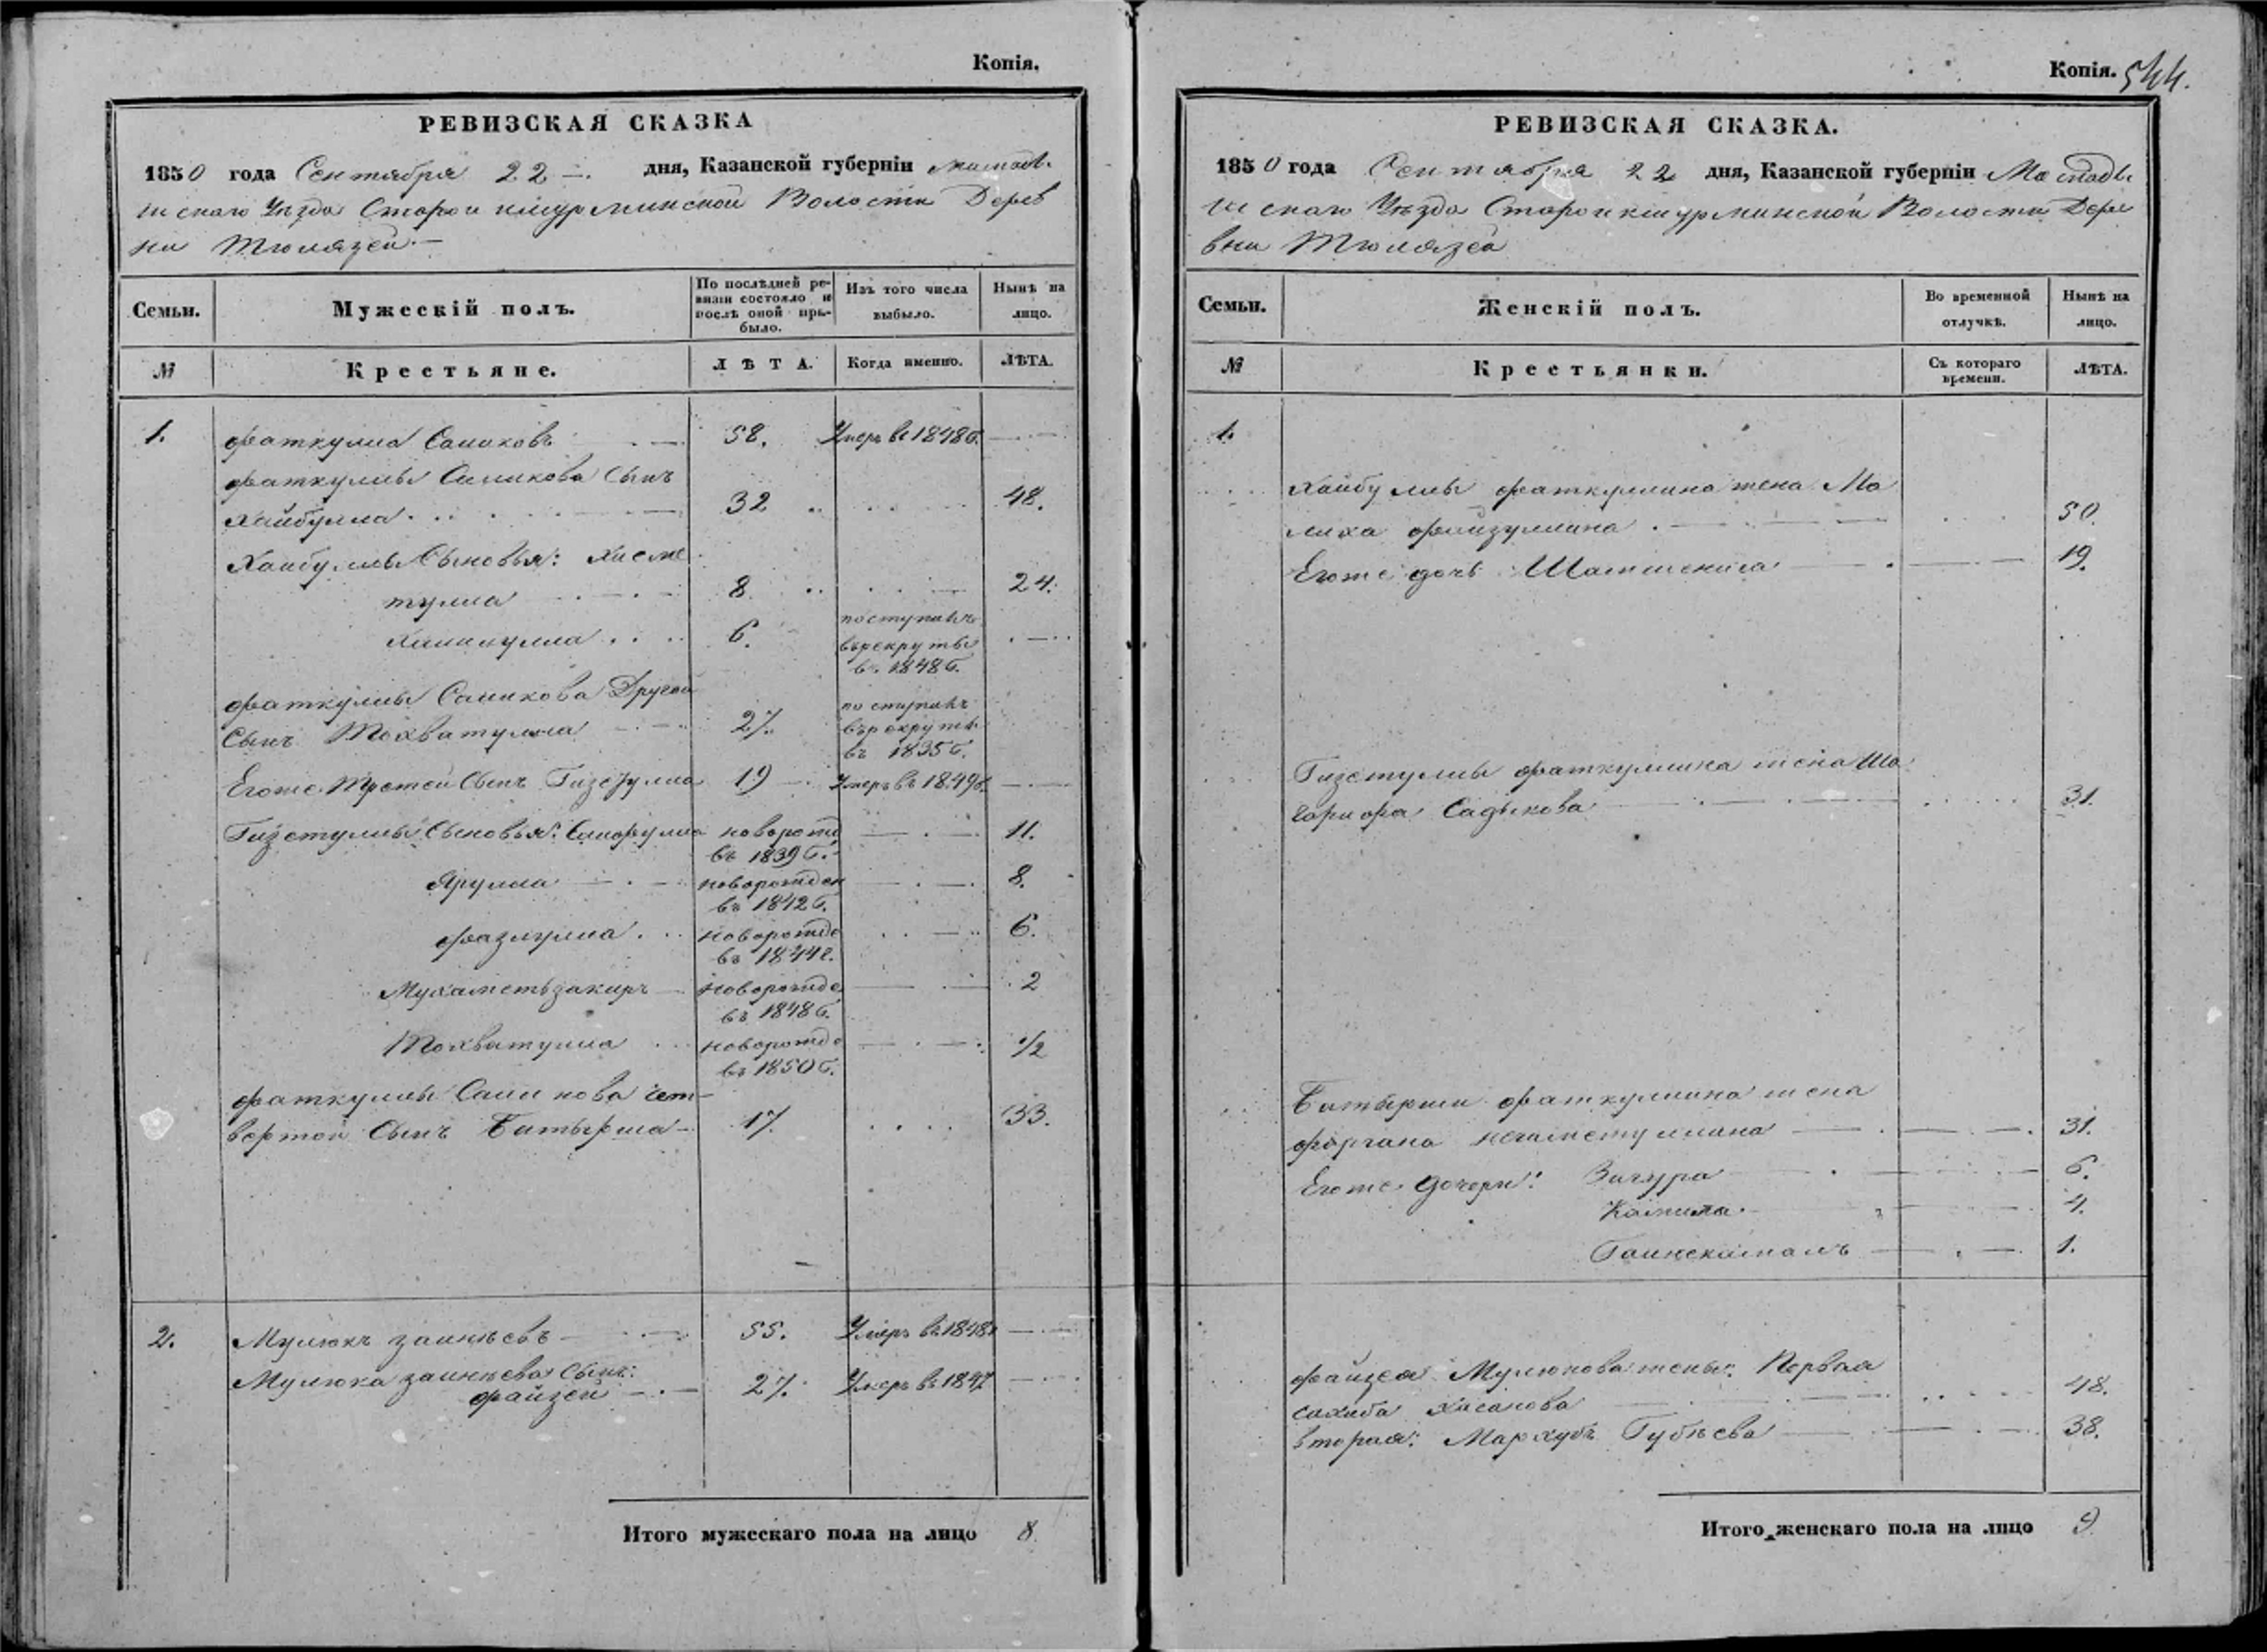 Копія.
РЕВИЗСКАЯ СКАЗКА
1850 года Сентября 22 дня, Казанской губерніи Мамады-
шскаго Уѣзда Старо икшурминской Волости Дерев
ни Тюлязей.
Семьи.
Мужескій полъ.
По послѣдней ре-
визіи состояло и
послѣ оной при-
было.
Изъ того числа
выбыло.
Нынѣ на
лицо.
№
Крестьяне.
ЛѢТА.
Когда именно.
ЛѢТА.
1. Фаткулла Саликовъ 58. Умеръ въ 1848 г.
Фаткуллы Саликова Сынъ
Хайбулла 32 48.
Хайбуллы Сыновья: Хисме
тулла 8 24.
6. поступилъ
въ рекруты
в. 1848 г.
Фаткуллы Саликова Другой
Сынъ Мохватулла 27. поступилъ
въ рекруты
въ 1835 г.
Егоже Третей Сынъ Гизетулла 19 Умеръ въ 1849 г.
Гизетуллы Сыновья: новорожд 11.
въ 1839 г.
Ярулла новорожден 8.
въ 1842 г.
Фазлулла новорожде 6.
въ 1844 г.
Мухаметьзакиръ новорожде 2
въ 1848 г.
Мохватулла новорожде 1/2
въ 1850 г.
Фаткуллы Саликова чет-
вертой Сынъ Батырша 17. 33.
2. Мулюкъ Заинѣевъ 55. Умеръ въ 1848
Мулюка Заинѣева Сынъ:
Файзей 27. Умеръ въ 1847
Итого мужескаго пола на лицо 8
Копія. 544.
РЕВИЗСКАЯ СКАЗКА.
1850 года Сентября 22 дня, Казанской губерніи Мамады-
шскаго Уѣзда Старо икшурминской Волости Дере
вни Тюлязей
Семьи.
Женскій полъ.
Во временной
отлучкѣ.
Нынѣ на
лицо.
№
Крестьянки.
Съ котораго
времени.
ЛѢТА.
1.
Хайбуллы Фаткуллина жена Ма
лиха Файзуллина 50.
Егоже дочь 19.
Гизетуллы Фаткуллина жена Ша
Садыкова 31.
Батырши Фаткуллина жена
31.
Егоже дочери: Зигура 6.
Камила 4.
1.
Файзея Мулюкова жены: Первая
Сахиба Хасанова 48.
вторая: Мархубъ Губѣева 38.
Итого женскаго пола на лицо 9